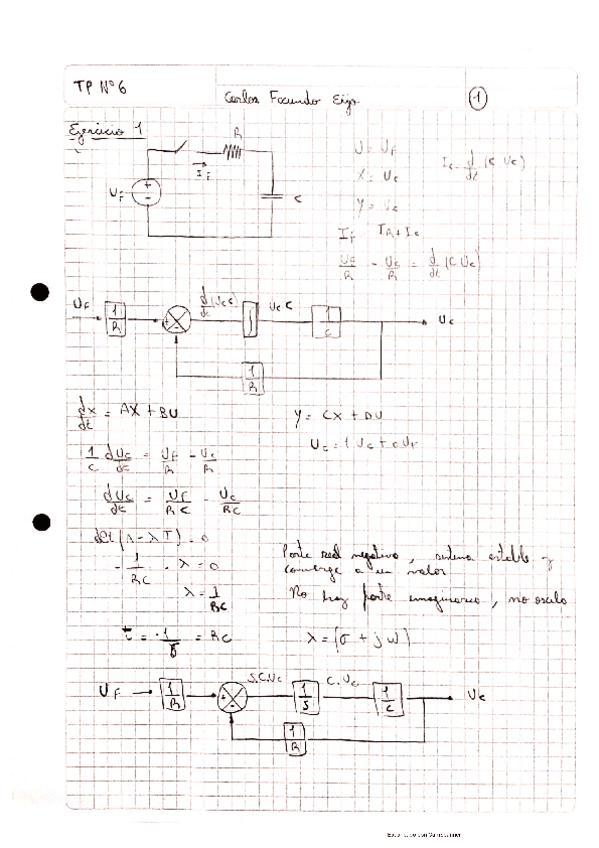 TP Nº6
Carlos Facundo
1
Ejercicio 1
R
I_F
U_F
C
U = U_F
X = U_C
Y = U_C
I_C = d/dt (C U_C)
I_F = I_R + I_C
U_F/R - U_C/R = d/dt (C U_C)
U_F 1/R + - d/dt (U_C C) ∫ U_C C 1/C U_C
1/R
dx/dt = AX + BU
Y = CX + DU
1/C dU_C/dt = U_F/R - U_C/R
U_C = 1 U_C + 0 U_F
dU_C/dt = U_F/RC - U_C/RC
det (A - λ I) = 0
-1/RC - λ = 0
λ = 1/RC
Parte real negativo, sistema estable y
converge a un valor
No hay parte imaginario, no oscila
τ = -1/σ = RC
λ = (σ + jω)
U_F 1/R + - S.C.U_C 1/S C.U_C 1/C U_C
1/R